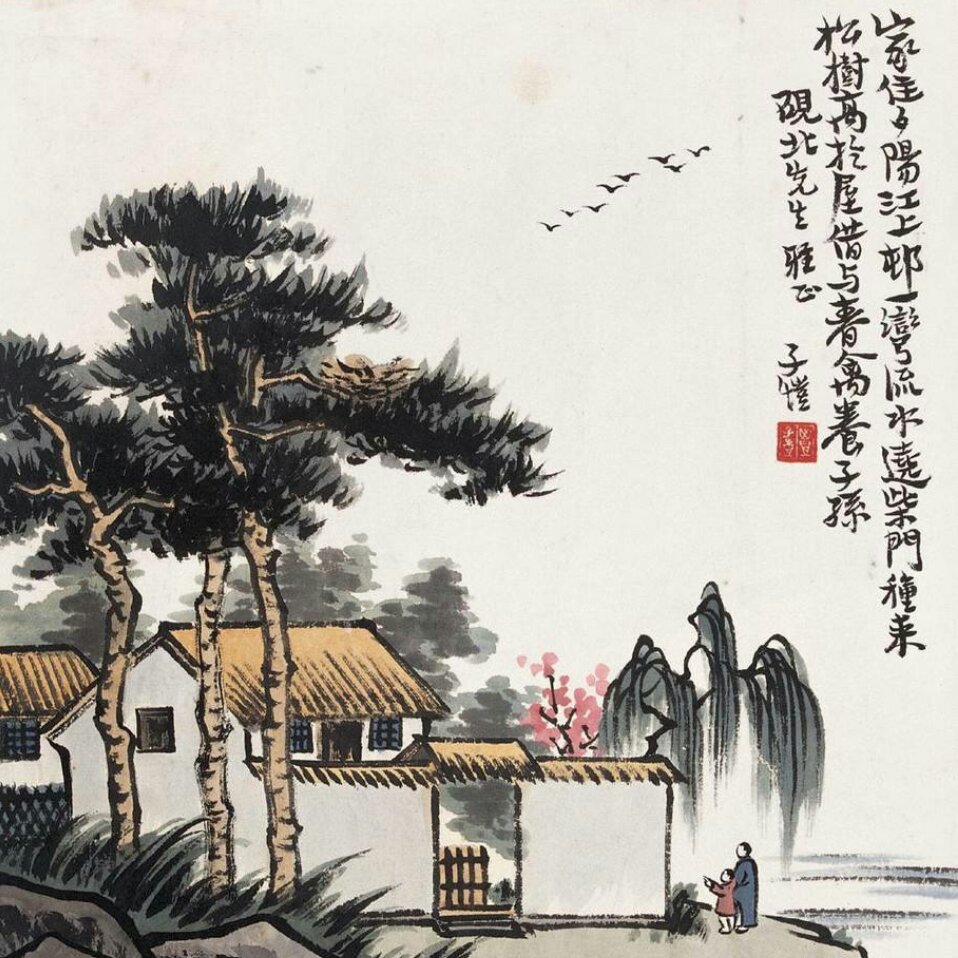 家住夕陽江上邨一彎流水遶柴門種来
松樹高於屋借与春禽養子孫
硯北先生雅正 子愷